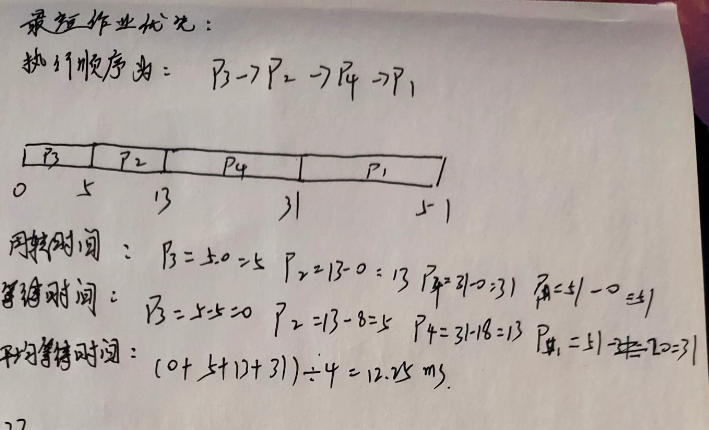 最短作业优先：
执行顺序为： P3→P2→P4→P1
P3 P2 P4 P1
0 5 13 31 51
周转时间： P3=5-0=5 P2=13-0=13 P4=31-0=31 P1=51-0=51
等待时间： P3=5-5=0 P2=13-8=5 P4=31-18=13 P1=51-20=31
平均等待时间： (0+5+13+31)÷4=12.25 ms.